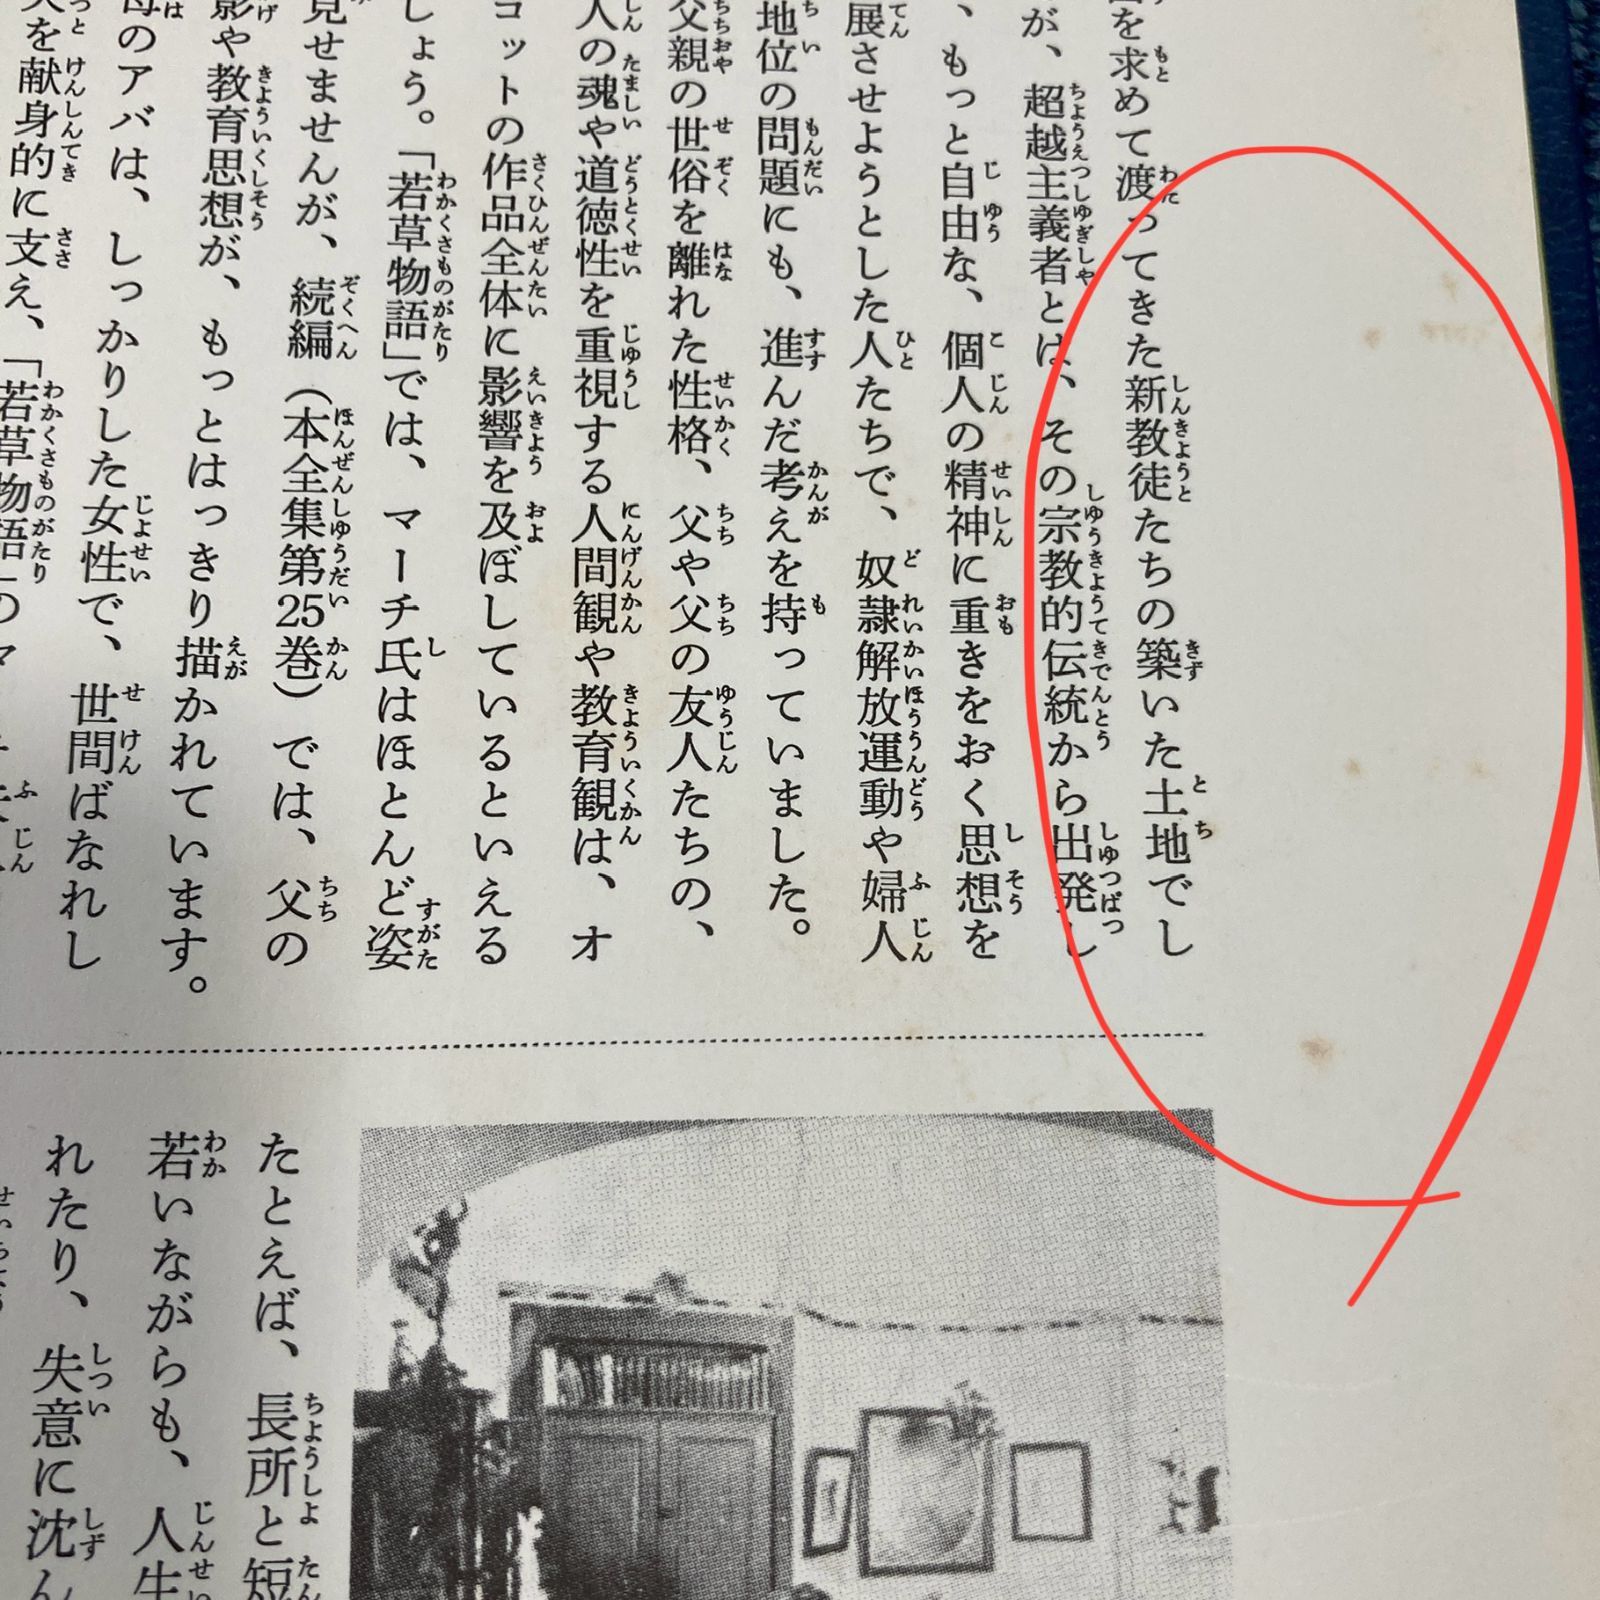 を求めて渡ってきた新教徒たちの築いた土地でし
が、超越主義者とは、その宗教的伝統から出発し
、もっと自由な、個人の精神に重きをおく思想を
展させようとした人たちで、奴隷解放運動や婦人
地位の問題にも、進んだ考えを持っていました。
父親の世俗を離れた性格、父や父の友人たちの、
人の魂や道徳性を重視する人間観や教育観は、オ
コットの作品全体に影響を及ぼしているといえる
しょう。「若草物語」では、マーチ氏はほとんど姿
見せませんが、続編（本全集第25巻）では、父の
影や教育思想が、もっとはっきり描かれています。
母のアバは、しっかりした女性で、世間ばなれし
夫を献身的に支え、「若草物語」のマ
たとえば、長所と短
若いながらも、人生
れたり、失意に沈ん